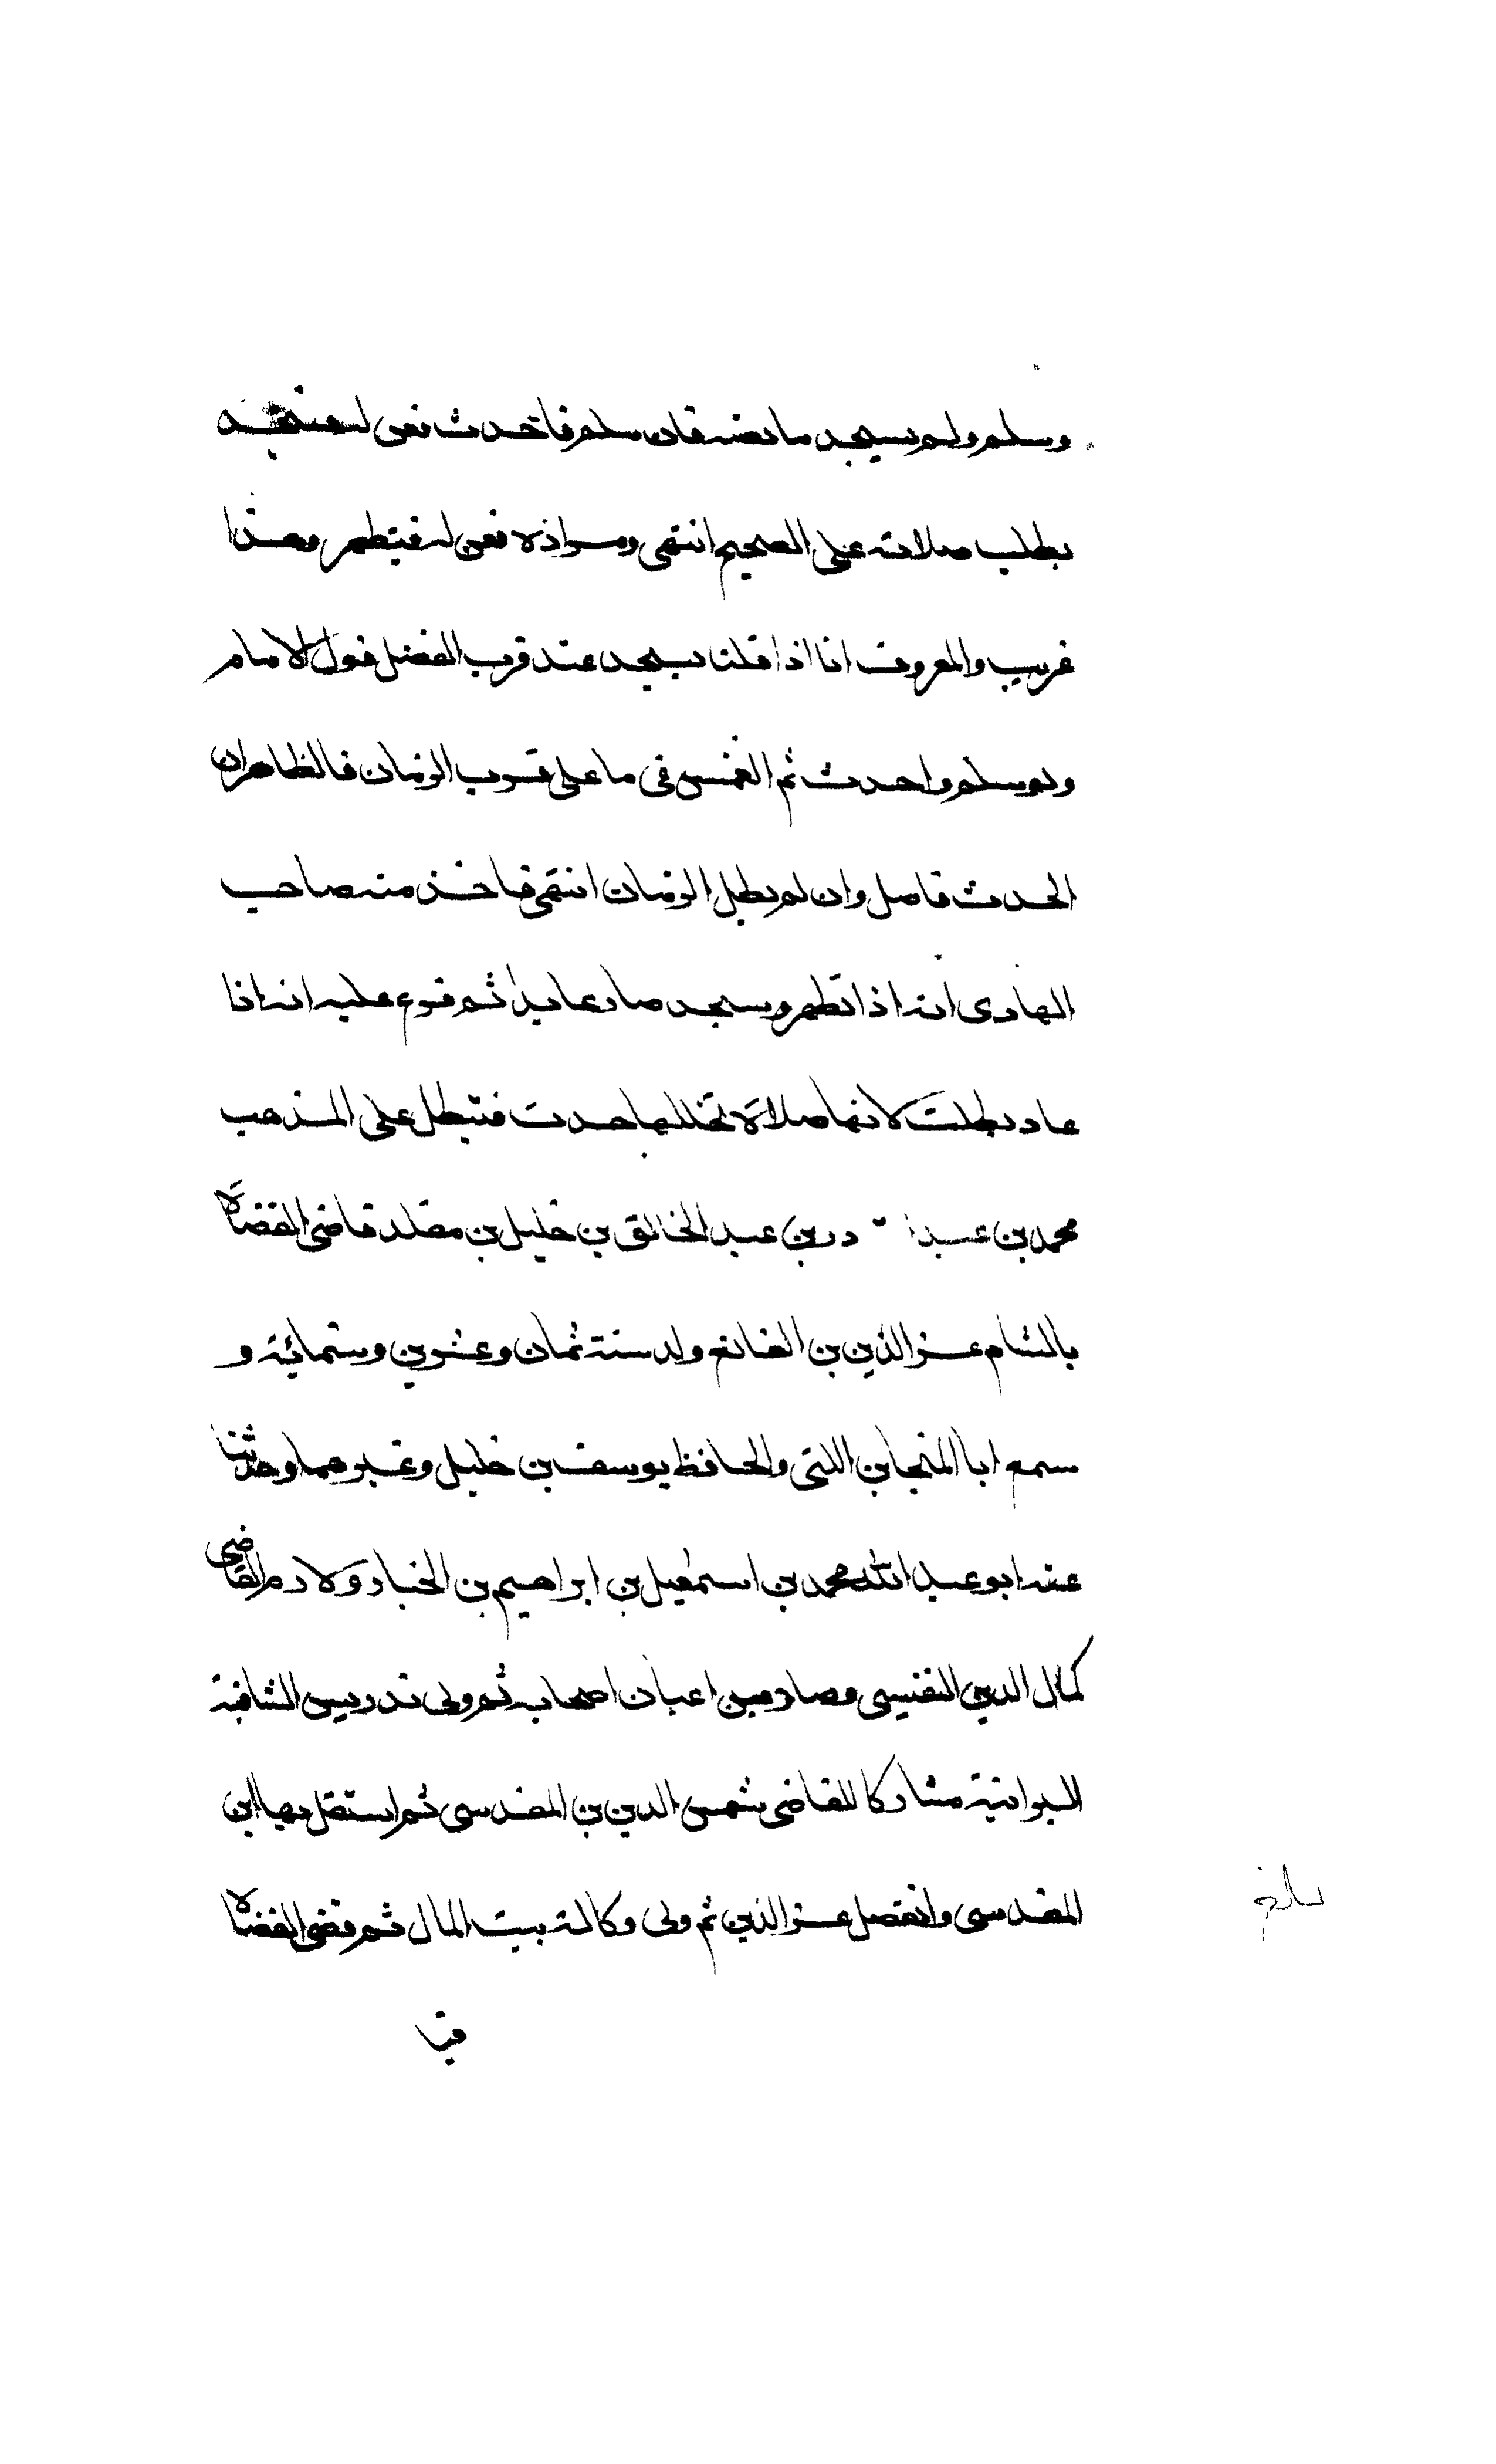 وسلم ولم يسجد ما نصه فان سلم فاحدث فعن له
بطلب صلاته على الصحيح انتهى ومراده فعن له فيتطهر وهذا
غريب والمعروف انا اذا قلنا يسجد عند قرب الفصل فول الامام
ولو سلم واحدث ثم انغمس في ما على قرب الزمان فالظاهر ان
الحدث فاصل وان لم يطل الزمان انتهى فاخذ منه صاحب
الهادى انه اذا تطهر وسجد صار عايدا ثم فرع عليه انه اذا
عاد بطلت لانها صلاة تخللها حدث فتبطل على المذهب
محمد بن عبد القادر بن عبد الخالق بن خليل بن مقلد قاضى القضاة
بالشام عز الدين بن الصانع ولد سنة ثمان وعشرين وستمائة و
سمع ابا المنجا بن اللتى والحافظ يوسف بن خليل وغيرهما وحدثنا
عنه ابو عبد الله محمد بن اسمعيل بن ابراهيم بن الخباز ولازم القاضى
كمال الدين التفليسى وصار من اعيان اصحابه ثم ولى تدريس الشامية
البرانية مشاركا للقاضى شمس الدين بن المقدسى ثم استقل بها ابن
المقدسى وانفصل عز الدين ثم ولى وكالة بيت المال ثم قضى القضاة
بلغ